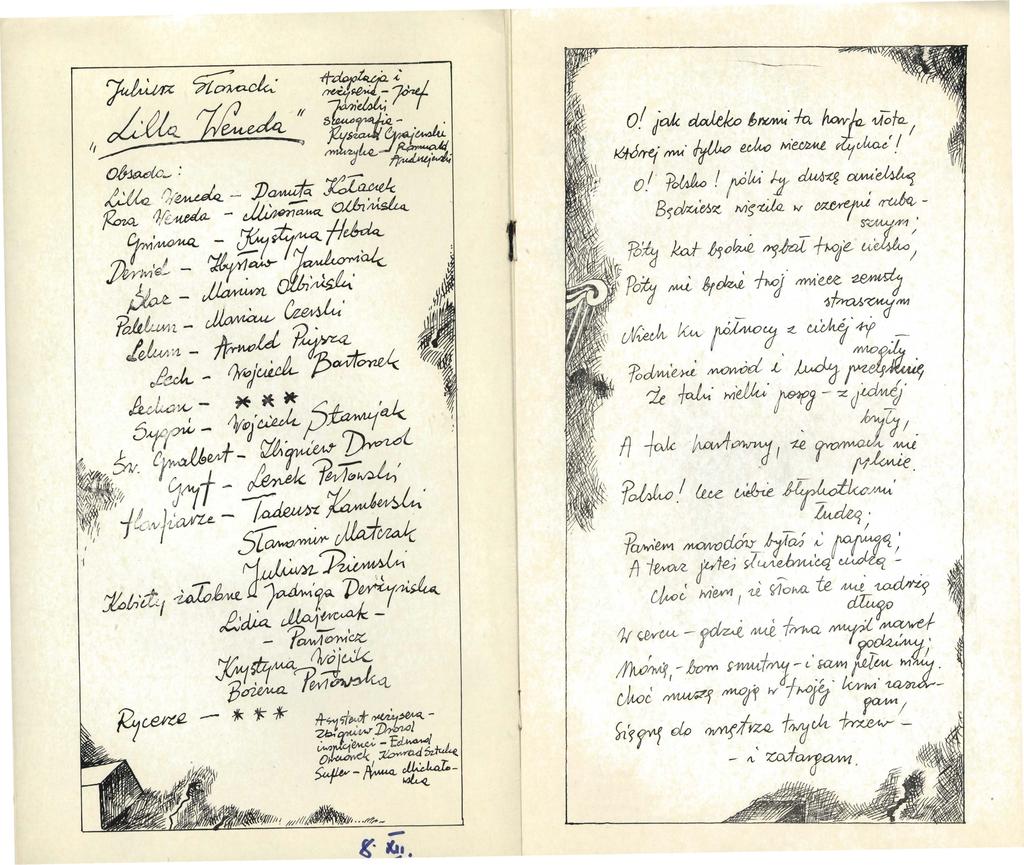 Juliusz Słowacki
„Lilla Weneda"
Adaptacja i
reżyseria – Józef
Jasielski
scenografia –
Ryszard Grajewski
muzyka – Romuald
Andrzejewski
Obsada:
Lilla Weneda – Danuta Kołaczek
Roza Weneda – Mirosława Olbińska
Gwinona – Krystyna Hebda
Derwid – Zbysław Jankowiak
Ślaz – Mariusz Olbiński
Polelum – Marian Czerski
Lelum – Arnold Pujsza
Lech – Wojciech Bartoszek
Lechon – * * *
Sygoń – Wojciech Stawujak
Św. Gwalbert – Zbigniew Drozd
Gryf – Leszek Perłowski
Harfiarze – Tadeusz Kamberski
Sławomir Matczak
Juliusz Dziemski
Kobiety żałobne – Jadwiga Derżyńska
Lidia Majerczak –
– Pawłowicz
Krystyna Wójcik
Bożena Perłowska
Rycerze – * * *
Asystent reżysera –
Zbigniew Drozd
inspicjenci – Edward
Owczorek, Konrad Sztuka
Sufler – Anna Michało-
wska
8. XII.
O! jak daleko brzmi ta harfa złota,
której mi tylko echo wieczne słychać!
O! Polsko! póki ty duszę anielską
Będziesz więziła w czerepie ruba-
sznym;
Póty kat będzie rąbał twoje cielsko,
Póty nie będzie twój miecz zemsty
strasznym
Niech ku północy z cichéj się
mogiły
Podniesie naród i ludy przelęknie,
Że taki wielki posąg – z jednéj
bryły,
A tak hartowny, że gromach nie
pęknie.
Polsko! lecz ciebie błyskotkami
łudzą;
Pawiem narodów byłaś i papugą;
A teraz jesteś służebnicą cudzą –
Choć wiem, że słowa te nie zadrżą
długo
W sercu – gdzie nie trwa myśl nawet
godziny;
Mówię, – bom smutny – i sam pełen winy.
Choć muszę moję w twojéj krwi zaszar-
gam,
Sięgnę do wnętrza twych trzew –
– i zatargam.